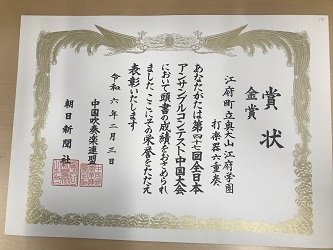 賞状
金賞
江府町立奥大山江府学園
打楽器六重奏
あなたがたは第四十七回全日本
アンサンブルコンテスト中国大会
において頭書の成績をおさめられ
ましたここにその栄誉をたたえ
表彰いたします
令和六年二月三日
中国吹奏楽連盟
朝日新聞社